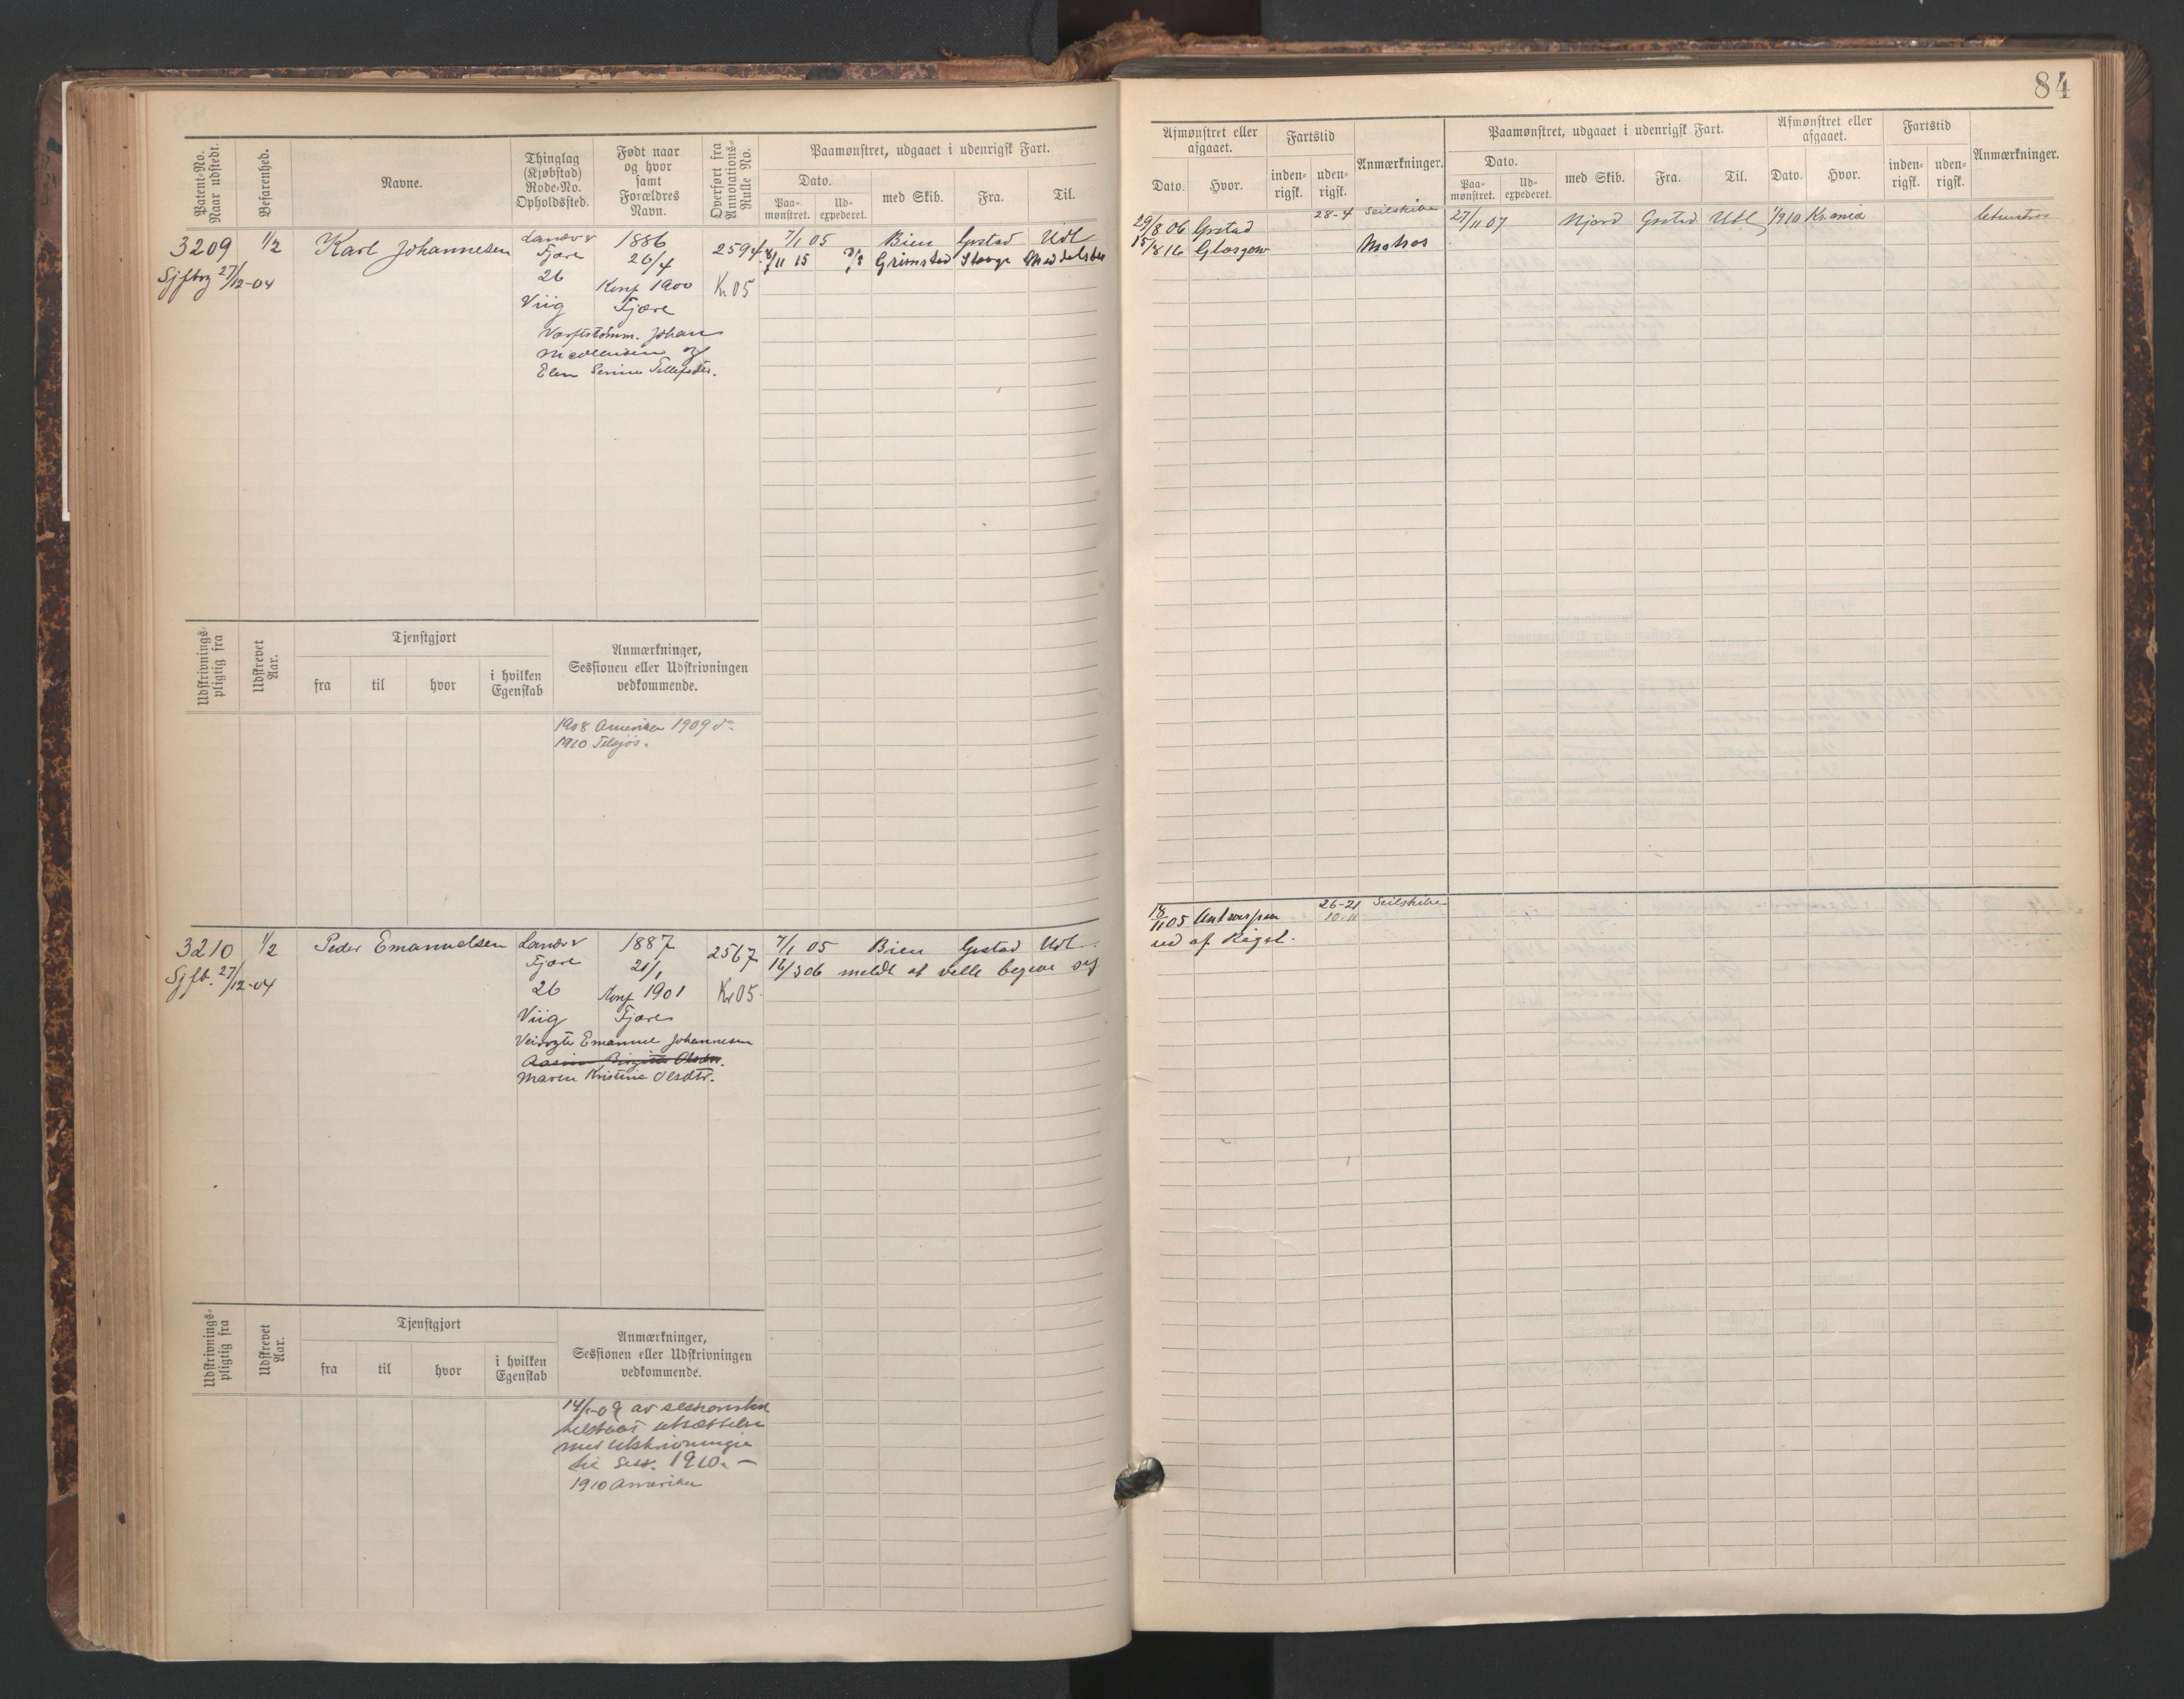 84
Patent-No. Naar udstedt.
Befarenhed.
Navne.
Thinglag (Kjøbstad) Rode-No. Opholdssted.
Født naar og hvor samt Forældres Navn.
Overført fra Annotations-Rulle No.
Paamønstret, udgaaet i udenrigsk Fart.
Dato.
Paa-mønstret.
Ud-expederet.
med Skib.
Fra.
Til.
Afmønstret eller afgaaet.
Dato.
Hvor.
Fartstid
inden-rigsk.
uden-rigsk.
Anmærkninger.
Paamønstret, udgaaet i udenrigsk Fart.
Dato.
Paa-mønstret.
Ud-expederet.
med Skib.
Fra.
Til.
Afmønstret eller afgaaet.
Dato.
Hvor.
Fartstid
inden-rigsk.
uden-rigsk.
Anmærkninger.
3209 1/2 Karl Johannesen
Sjftog 27/12-04
Landv
Fjære
26
Viig
1886
26/4
Konf 1900
Fjære
Johan
Elen
2594
Kr 05
7/1 05 Bien Grstad Udl
11 15 Grimstad
29/8 06 Grstad 28-4 Seilskibe
15/8 16 Glasgow Matros
27/11 07 Njord Grstad Udl 1/9 10 Kr.ania
Udskrivnings-pligtig fra
Udskrevet Aar.
Tjenstgjort
fra
til
hvor
i hvilken Egenskab
Anmærkninger, Sessionen eller Udskrivningen vedkommende.
1908 Amerika 1909 do
1910 Tilsjøs.
3210 1/2 Peder Emanuelsen
Sjft. 27/12-04
Landv
Fjære
26
Viig
1887
21/1
Konf 1901
Fjære
Emanuel Johannesen
Maren Kristine Olsdtr.
2567
Kr 05
7/1 05 Bien Grstad Udl.
16/3 06 meldt at ville begive sig
18/11 05 Antwerpen 26-21 Seilskibe
10-11
ud af Riget.
Udskrivnings-pligtig fra
Udskrevet Aar.
Tjenstgjort
fra
til
hvor
i hvilken Egenskab
Anmærkninger, Sessionen eller Udskrivningen vedkommende.
av
tilstaat utsættelse
med utskrivningen
til Sess. 1910.-
1910 Amerika